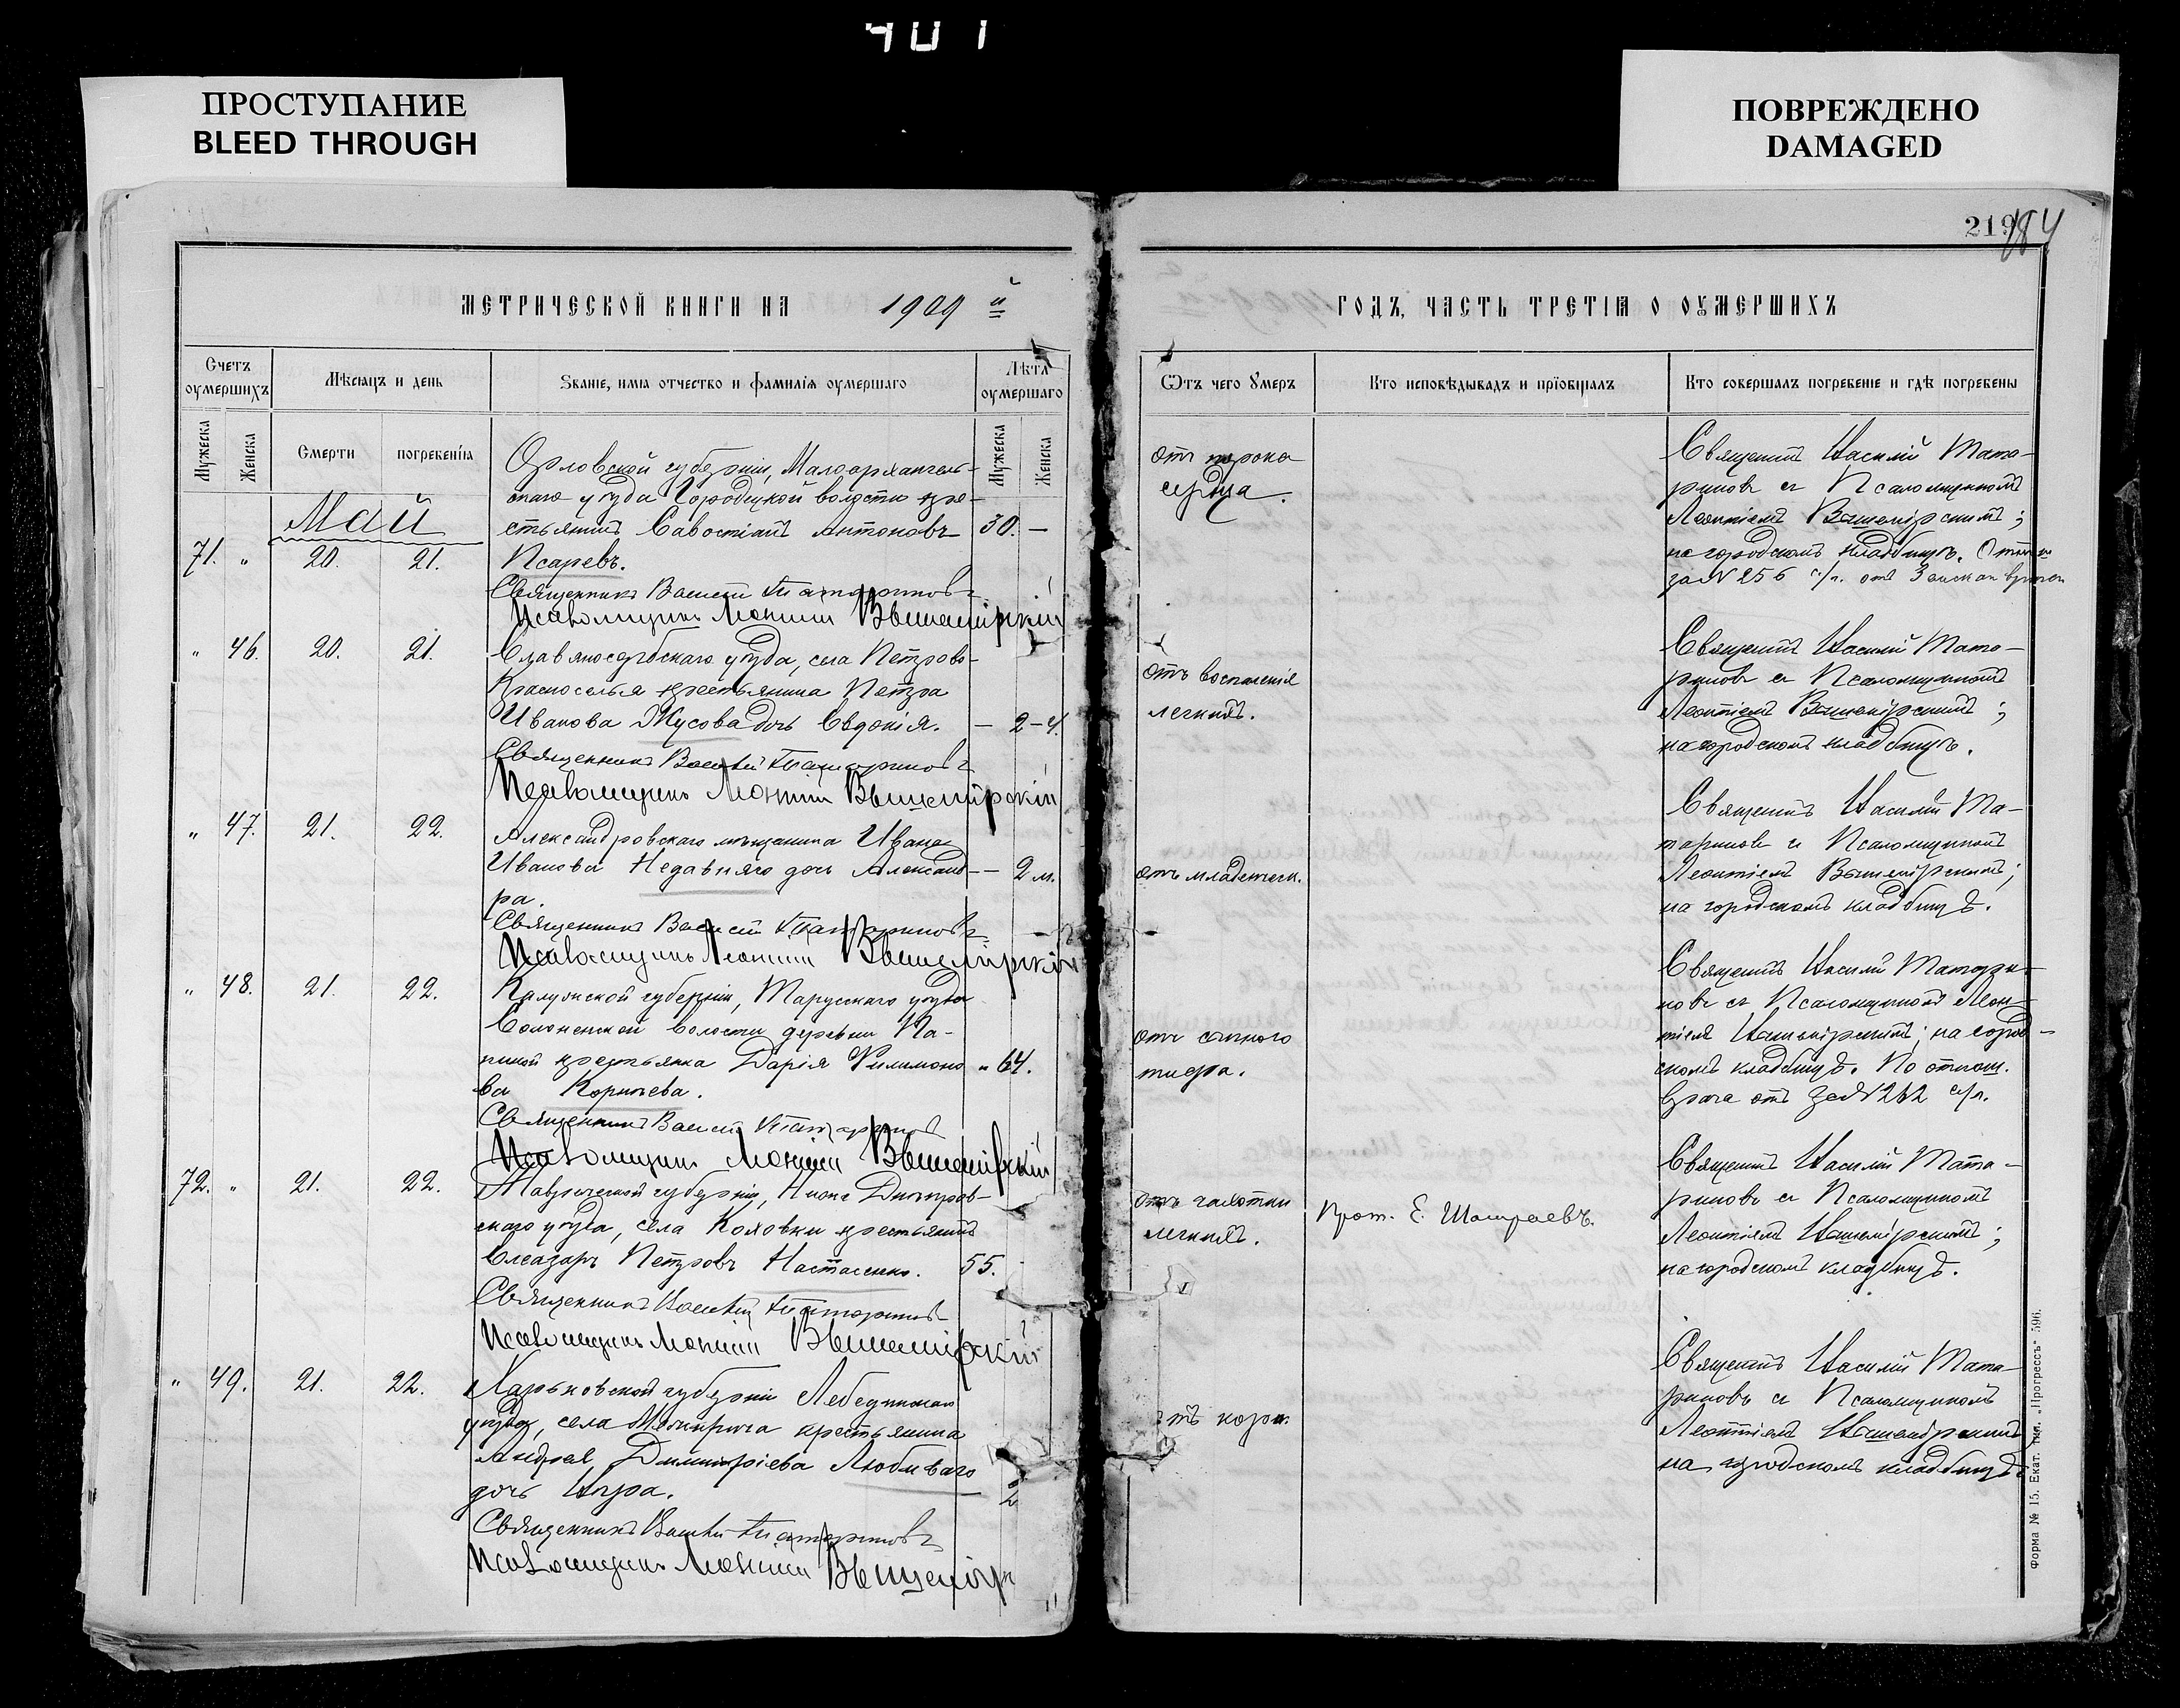 401
ПРОСТУПАНИЕ
BLEED THROUGH
ПОВРЕЖДЕНО
DAMAGED
219
184
МЕТРИЧЕСКОЙ КНИГИ НА 1909 й
ГОДЪ, ЧАСТЬ ТРЕТІѦ О ОУМЕРШИХЪ
Счетъ оумершихъ
Мѣсяцъ и день
Званіе, имя отчество и фамилія оумершаго
Лѣта оумершаго
Ѿтъ чего Умеръ
Кто исповѣдывалъ и пріобщалъ
Кто совершалъ погребеніе и гдѣ погребены
Мужеска
Женска
Смерти
погребенія
Мужеска
Женска
Май
71. " 20. 21.
Орловской губерніи, Малоархангель-
скаго уѣзда Городецкой волости кре-
стьянинъ Савостіанъ Антоновъ 30. —
Псаревъ.
Священникъ Василій Татариновъ
Псаломщикъ Леонтій Вышемірскій
отъ порока
сердца.
Священникъ Василій Тата-
риновъ съ Псаломщикомъ
Леонтіемъ Вышемірскимъ;
на городскомъ кладбищѣ.
за № 256
" 46. 20. 21.
Славяносербскаго уѣзда, села Петрово-
Красноселья крестьянина Петра
Иванова Жусова дочь Евдокія. — 2-4.
Священникъ Василій Татариновъ
Псаломщикъ Леонтій Вышемірскій
отъ воспаленія
легкихъ.
Священникъ Василій Тата-
риновъ съ Псаломщикомъ
Леонтіемъ Вышемірскимъ;
на городскомъ кладбищѣ.
" 47. 21. 22.
Александровскаго мѣщанина Ивана
Иванова Недавняго дочь Александ- — 2 м.
ра.
Священникъ Василій Татариновъ
Псаломщикъ Леонтій Вышемірскій
отъ младенческ.
Священникъ Василій Та-
тариновъ съ Псаломщикомъ
Леонтіемъ Вышемірскимъ;
на городскомъ кладбищѣ.
" 48. 21. 22.
Калужской губерніи, Тарусскаго уѣзда
волости деревни Па-
крестьянка Дарія Филимоно- " 64.
ва Корнѣева.
Священникъ Василій Татариновъ
Псаломщикъ Леонтій Вышемірскій
отъ сыпного
тифа.
Священникъ Василій Татари-
новъ съ Псаломщикомъ Леон-
тіемъ Вышемірскимъ; на город-
скомъ кладбищѣ. По отнош.
врача отъ за № 262 с/г.
72. " 21. 22.
Таврической губерніи, Днѣпров-
скаго уѣзда, села крестьянинъ
Елеазаръ Петровъ Настасенко. 55.
Священникъ Василій Татариновъ
Псаломщикъ Леонтій Вышемірскій
отъ чахотки
легкихъ.
Прот. Е. Шаираевъ.
Священникъ Василій Тата-
риновъ съ Псаломщикомъ
Леонтіемъ Вышемірскимъ;
на городскомъ кладбищѣ.
" 49. 21. 22.
Харьковской губерніи Лебединскаго
уѣзда, села Межирича крестьянина
Андрея Димитріева Любиваго
дочь Вѣра. 2
Священникъ Василій Татариновъ
Псаломщикъ Леонтій Вышемірск
тъ кори
Священникъ Василій Тата-
риновъ съ Псаломщикомъ
Леонтіемъ Вышемірскимъ
на городскомъ кладбищѣ.
Форма № 15. Екат. тип. „Прогрессъ“ 596.